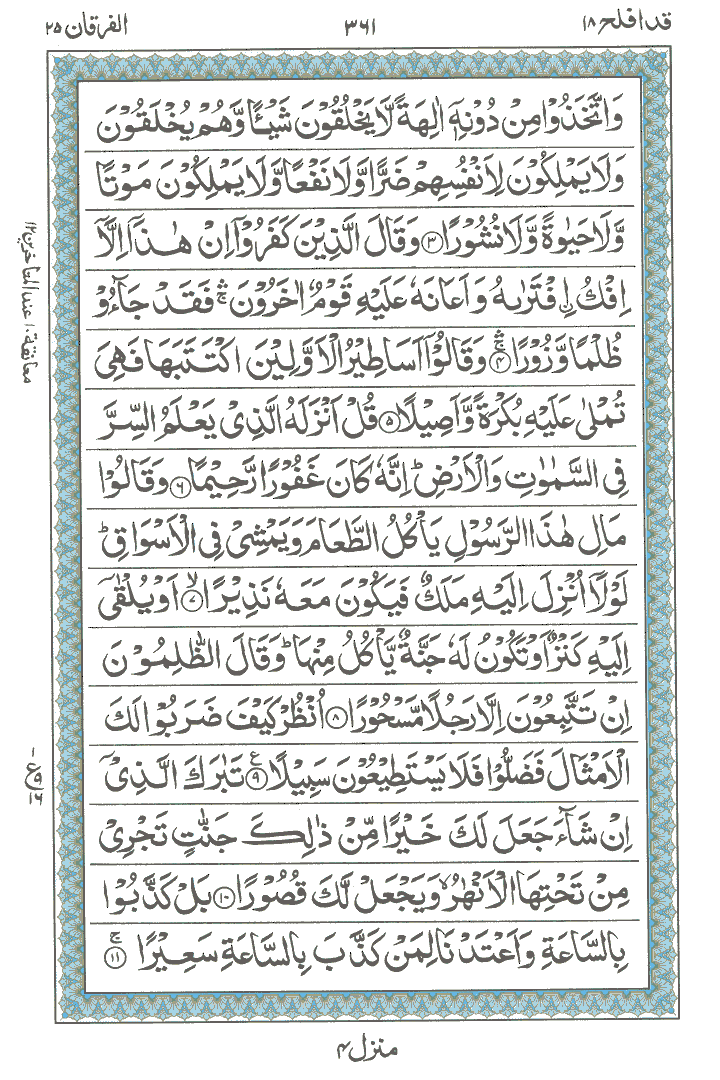 قد افلح ١٨
٣٦١
الفرقان ٢٥
وَاتَّخَذُوْا مِنْ دُوْنِهٖۤ اٰلِهَةً لَّا يَخْلُقُوْنَ شَيْـًٔا وَّهُمْ يُخْلَقُوْنَ
وَلَا يَمْلِكُوْنَ لِاَنْفُسِهِمْ ضَرًّا وَّلَا نَفْعًا وَّلَا يَمْلِكُوْنَ مَوْتًا
وَّلَا حَيٰوةً وَّلَا نُشُوْرًا ﴿۳﴾ وَقَالَ الَّذِيْنَ كَفَرُوْۤا اِنْ هٰذَاۤ اِلَّاۤ
اِفْكُ ۨافْتَرٰىهُ وَاَعَانَهٗ عَلَيْهِ قَوْمٌ اٰخَرُوْنَ ۛۚ فَقَدْ جَآءُوْ
ظُلْمًا وَّزُوْرًا ۛۚ ﴿۴﴾ وَقَالُوْۤا اَسَاطِيْرُ الْاَوَّلِيْنَ اكْتَتَبَهَا فَهِيَ
تُمْلٰى عَلَيْهِ بُكْرَةً وَّاَصِيْلًا ﴿۵﴾ قُلْ اَنْزَلَهُ الَّذِيْ يَعْلَمُ السِّرَّ
فِى السَّمٰوٰتِ وَالْاَرْضِ ؕ اِنَّهٗ كَانَ غَفُوْرًا رَّحِيْمًا ﴿۶﴾ وَقَالُوْا
مَالِ هٰذَا الرَّسُوْلِ يَاْكُلُ الطَّعَامَ وَيَمْشِيْ فِى الْاَسْوَاقِ ؕ
لَوْلَاۤ اُنْزِلَ اِلَيْهِ مَلَكٌ فَيَكُوْنَ مَعَهٗ نَذِيْرًا ۙ﴿۷﴾ اَوْ يُلْقٰۤى
اِلَيْهِ كَنْزٌ اَوْ تَكُوْنُ لَهٗ جَنَّةٌ يَّاْكُلُ مِنْهَا ؕ وَقَالَ الظّٰلِمُوْنَ
اِنْ تَتَّبِعُوْنَ اِلَّا رَجُلًا مَّسْحُوْرًا ﴿۸﴾ اُنْظُرْ كَيْفَ ضَرَبُوْا لَكَ
الْاَمْثَالَ فَضَلُّوْا فَلَا يَسْتَطِيْعُوْنَ سَبِيْلًا ﴿۹﴾ ع تَبٰرَكَ الَّذِيْۤ
اِنْ شَآءَ جَعَلَ لَكَ خَيْرًا مِّنْ ذٰلِكَ جَنّٰتٍ تَجْرِيْ
مِنْ تَحْتِهَا الْاَنْهٰرُ ۙ وَيَجْعَلْ لَّكَ قُصُوْرًا ﴿۱۰﴾ بَلْ كَذَّبُوْا
بِالسَّاعَةِ وَاَعْتَدْنَا لِمَنْ كَذَّبَ بِالسَّاعَةِ سَعِيْرًا ۚ﴿۱۱﴾
معانقة ۱۰ عند المتاخرين ۱۲
١
ع ٩
١٦
منزل ۴